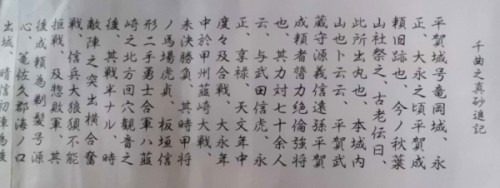 千曲之真砂進記
平賀城号竜岡城、永
正、大永之頃平賀成
頼旧跡也、今ノ秋葉
山社祭之、古老伝曰、
此所出丸也、本城内
山也ト云云、平賀武
蔵守源義信遠孫平賀
成頼者膂力絶倫強将
也、其力対七十余人
云、与武田信虎、永
正、享禄、天文年中
度々及合戦、大永年
中於甲州韮崎大戦、
未決勝負、其時甲将
ノ馬場虎貞、板垣信
形二手勇士合軍八韮
崎之北方回穴観音之
後、其戦半ナル 時
敵陣之突出横合奮
戦、信兵大狼狽不能
拒戦、及惣敗軍、其
後成頼為剃髪号源
心、亀佐久郡海ノ口
出城 晴信初陣為